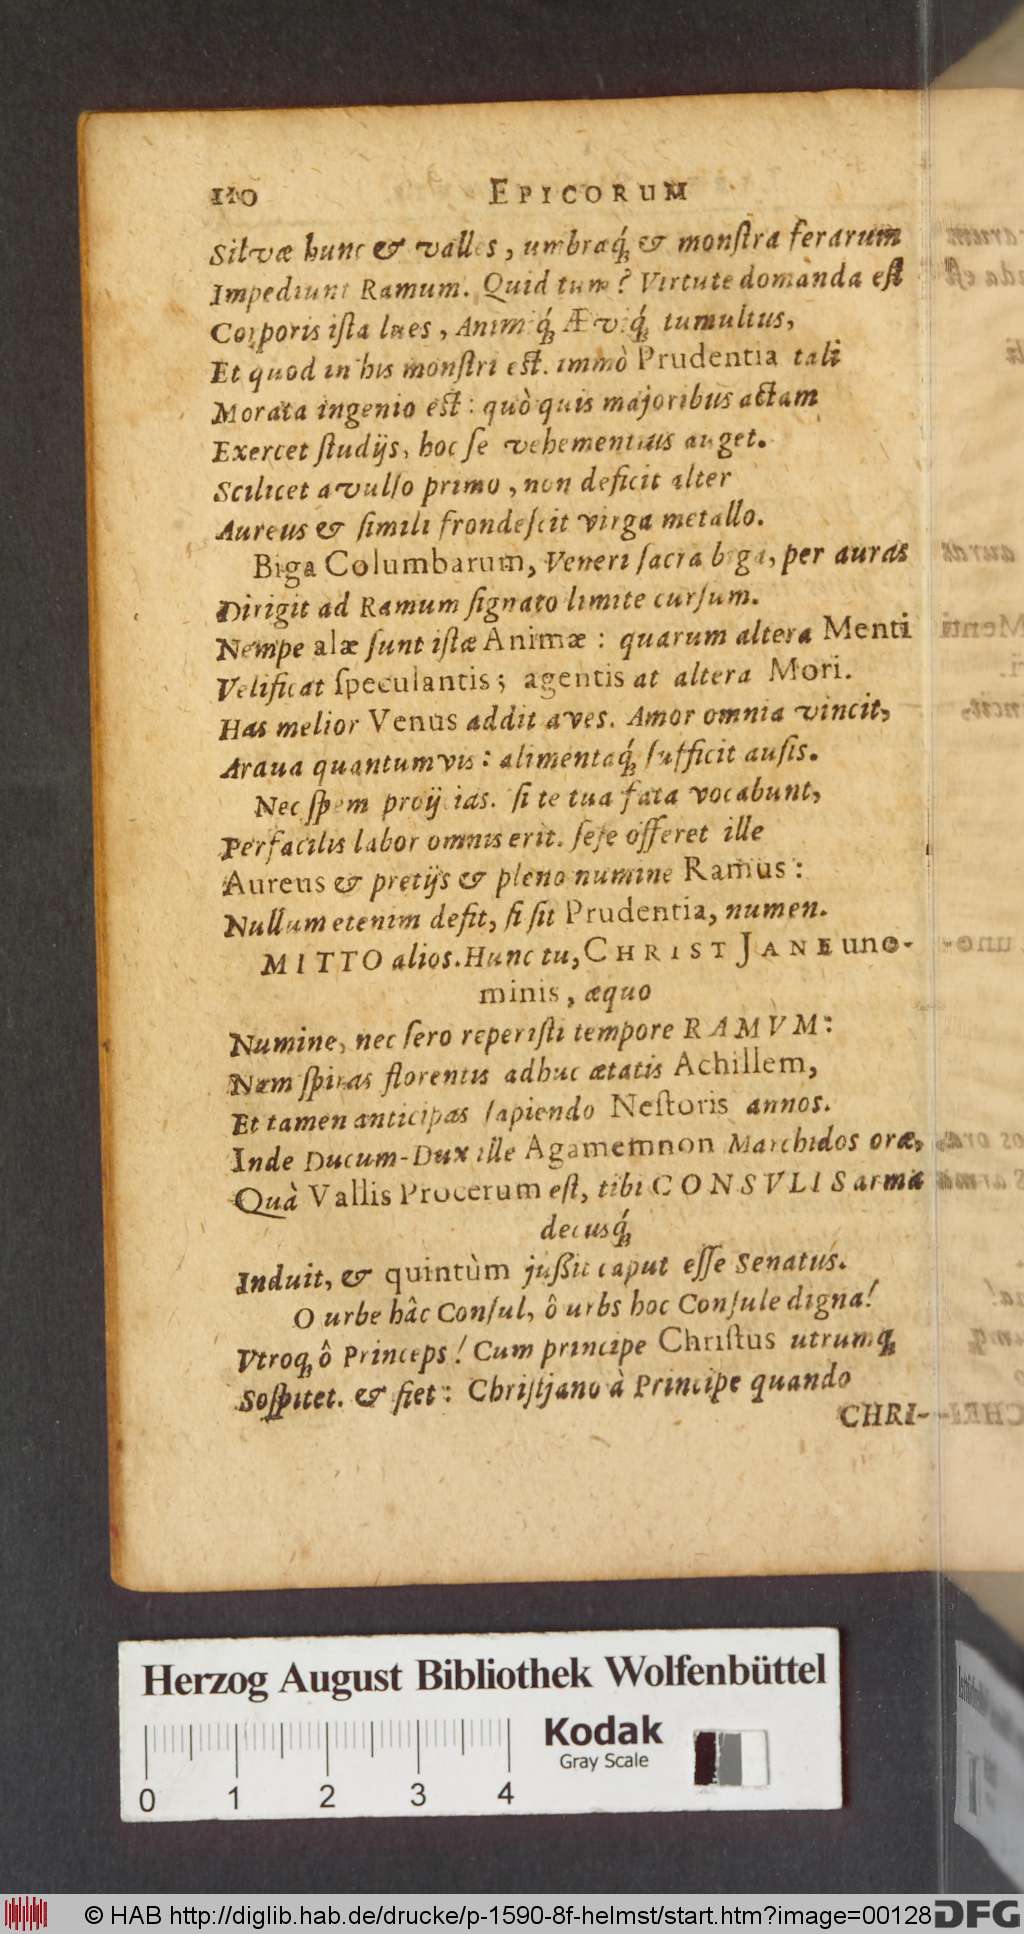 110 EPICORUM
Silvæ hunc & valles, umbraq́; & monſtra ferarum
Impediunt Ramum. Quid tum? Virtute domanda eſt
Corporis iſta lues, Animiq́; Æviq́; tumultus,
Et quod in his monſtri eſt. immò Prudentia tali
Morata ingenio eſt: quò quis majoribus actam
Exercet ſtudijs, hoc ſe vehementius auget.
Scilicet avulſo primo, non deficit alter
Aureus & ſimili frondeſcit virga metallo.
Biga Columbarum, Veneri ſacra biga, per auras
Dirigit ad Ramum ſignato limite curſum.
Nempe alæ ſunt iſtæ Animæ: quarum altera Menti
Velificat ſpeculantis; agentis at altera Mori.
Has melior Venus addit aves. Amor omnia vincit,
Ardua quantumvis: alimentaq́; ſufficit auſis.
Nec ſpem proijcias. ſi te tua fata vocabunt,
Perfacilis labor omnis erit. ſeſe offeret ille
Aureus & pretijs & pleno numine Ramus:
Nullum etenim defit, ſi ſit Prudentia, numen.
MITTO alios. Hunc tu, CHRISTJANE uno-
minis, æquo
Numine, nec ſero reperiſti tempore RAMVM:
Nam ſpiras florentis adhuc ætatis Achillem,
Et tamen anticipas ſapiendo Neſtoris annos.
Inde Ducum-Dux ille Agamemnon Marchidos oræ,
Quà Vallis Procerum eſt, tibi CONSVLIS arma
decusq́;
Induit, & quintùm juſſit caput eſſe Senatus.
O urbe hâc Conſul, ô urbs hoc Conſule digna!
Vtroq; ô Princeps! Cum principe Chriſtus utrumq;
Soſpitet. & fiet: Chriſtjano à Principe quando
CHRI-
Herzog August Bibliothek Wolfenbüttel
Kodak
Gray Scale
0 1 2 3 4
© HAB http://diglib.hab.de/drucke/p-1590-8f-helmst/start.htm?image=00128
DFG